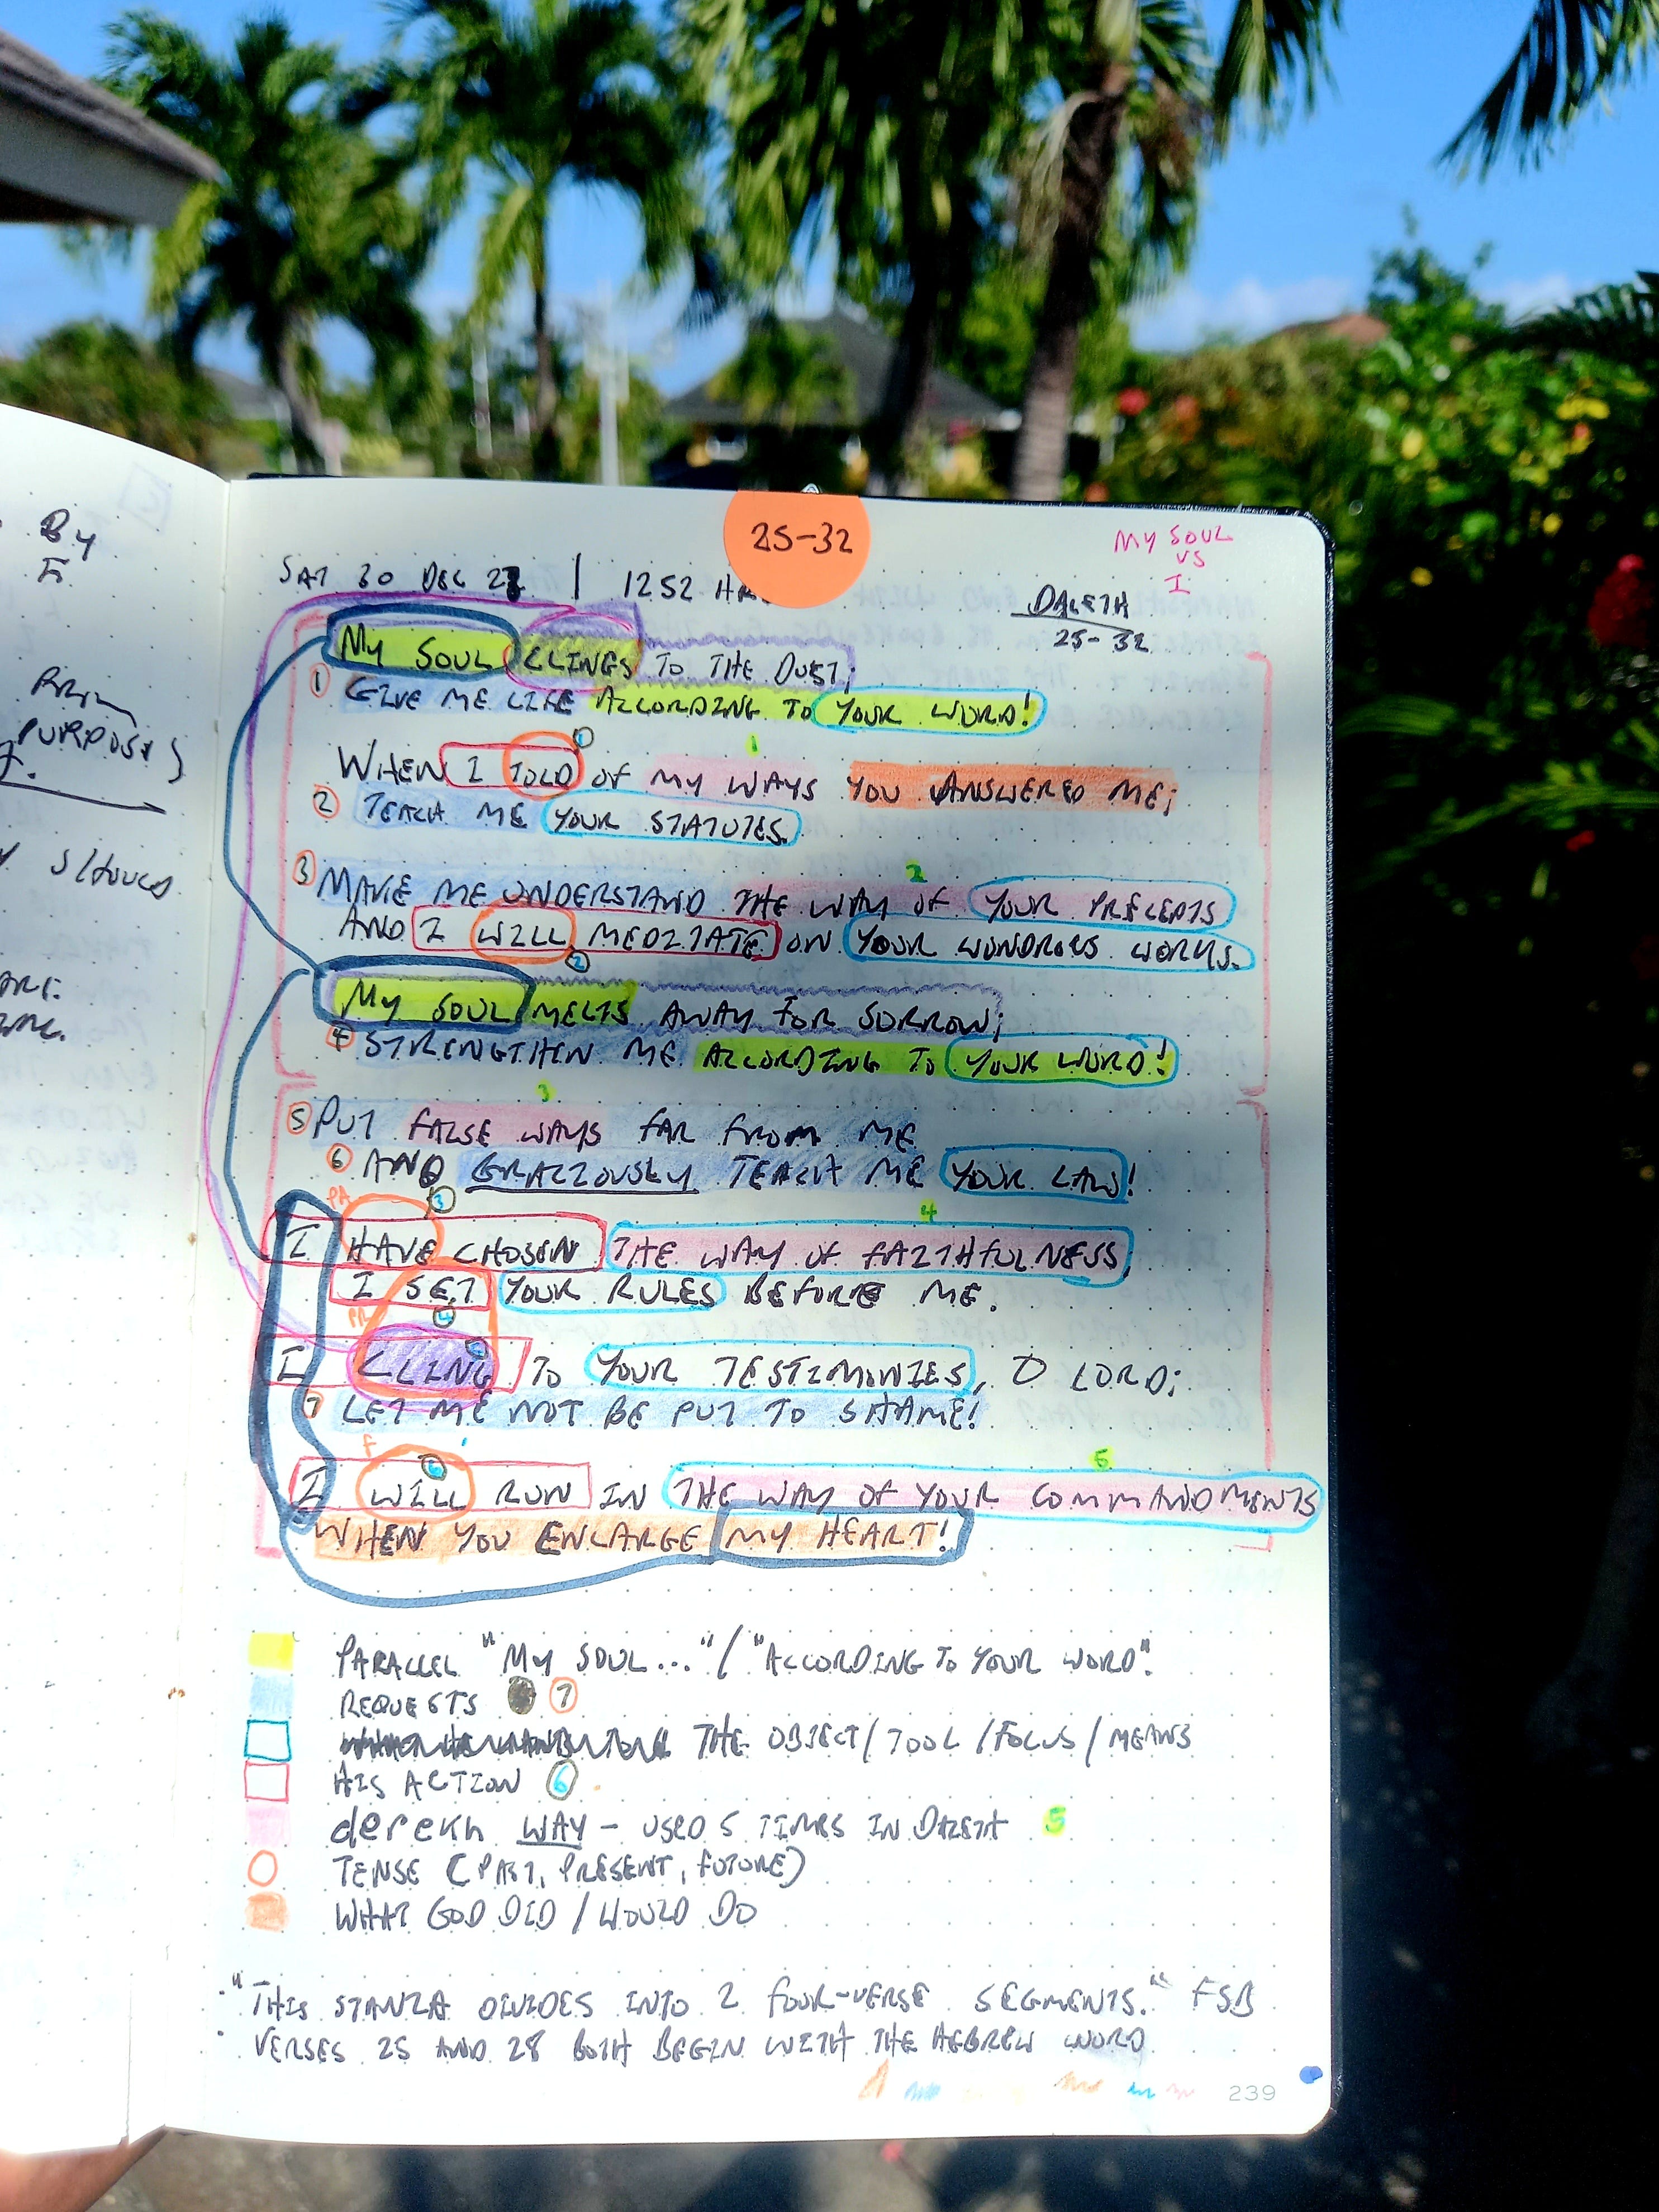 By
PURPOSES
25-32
MY SOUL
VS
I
SAT 30 DEC 23 | 1252
DALETH
25-32
MY SOUL CLINGS TO THE DUST;
1 GIVE ME LIFE ACCORDING TO YOUR WORD!
1 1
WHEN I TOLD OF MY WAYS YOU ANSWERED ME;
2 TEACH ME YOUR STATUTES.
2
3 MAKE ME UNDERSTAND THE WAY OF YOUR PRECEPTS
AND I WILL MEDITATE ON YOUR WONDROUS WORKS.
2
MY SOUL MELTS AWAY FOR SORROW;
4 STRENGTHEN ME ACCORDING TO YOUR WORD!
3
5 PUT FALSE WAYS FAR FROM ME
6 AND GRACIOUSLY TEACH ME YOUR LAW!
PA 3 4
I HAVE CHOSEN THE WAY OF FAITHFULNESS;
I SET YOUR RULES BEFORE ME.
PR 4
I CLING TO YOUR TESTIMONIES, O LORD;
7 LET ME NOT BE PUT TO SHAME!
F 5
I WILL RUN IN THE WAY OF YOUR COMMANDMENTS
WHEN YOU ENLARGE MY HEART!
PARALLEL "MY SOUL..." / "ACCORDING TO YOUR WORD".
REQUESTS 7
THE OBJECT / TOOL / FOCUS / MEANS
HIS ACTION 6
derekh WAY - USED 5 TIMES IN DALETH 5
TENSE (PAST, PRESENT, FUTURE)
WHAT GOD DID / WOULD DO
"THIS STANZA DIVIDES INTO 2 FOUR-VERSE SEGMENTS." FSB
VERSES 25 AND 28 BOTH BEGIN WITH THE HEBREW WORD
239